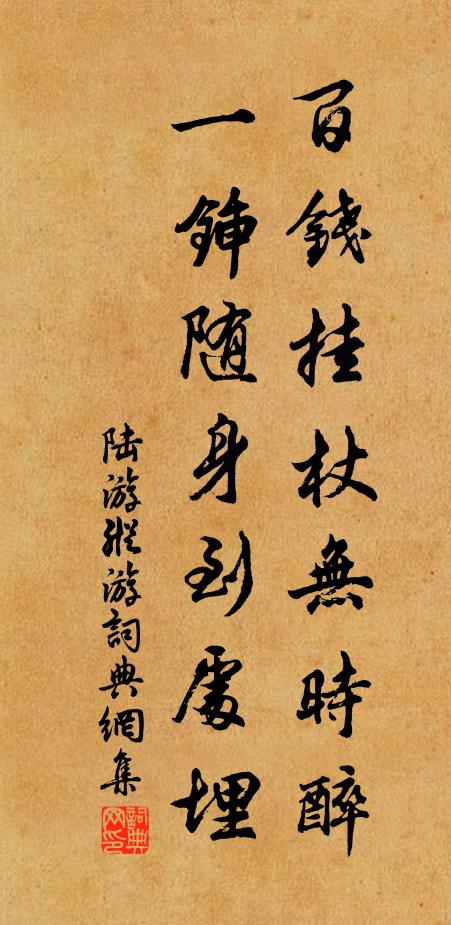 百錢挂杖無時醉
一鍤随身到處埋
陆游縱游詞典網集
詞典网印